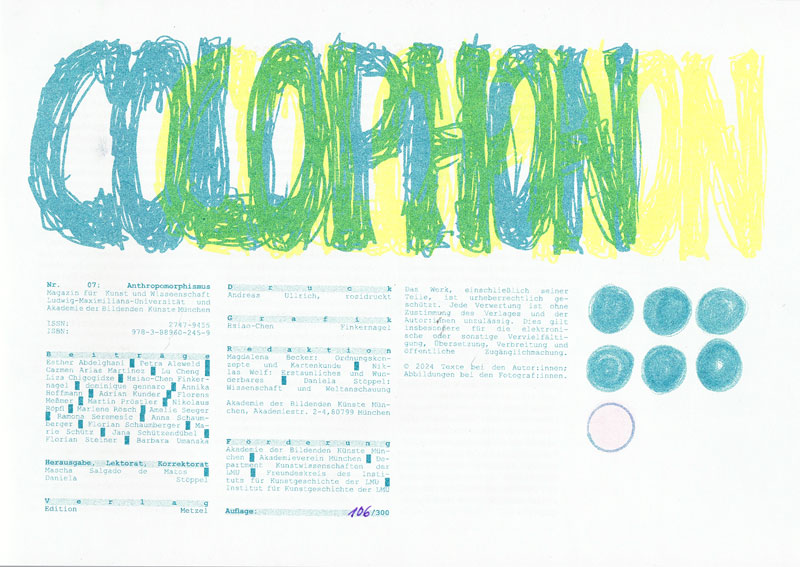 COLOPHON
Nr. 07: Anthropomorphismus
Magazin für Kunst und Wissenschaft
Ludwig-Maximilians-Universität und
Akademie der Bildenden Künste München
ISSN: 2747-9415
ISBN: 978-3-88960-245-9
Beiträge
Esther Abdelghani Petra Alswaid
Carmen Arias Martínez Lu Cheng
Liza Chigogidze Hsiao-Chen Finker-
nagel dominique gennaro Annika
Hoffmann Adrian Kunder Florens
Meßner Martin Pröstler Nikolaus
Röpfl Marlene Resch Amelie Seeger
Ramona Seremesic Anna Schaum-
berger Florian Schaumberger Ma-
rie Schütz Jana Schützendübel
Florian Steiner Barbara Umanska
Herausgabe, Lektorat, Korrektorat
Mascha Salgado de Matos
Daniela Stöppel
Verlag
Edition Metzel
Druck
Andreas Ullrich, rosidruckt
Grafik
Hsiao-Chen Finkernagel
Redaktion
Magdalena Becker: Ordnungskon-
zepte und Kartenkunde Nik-
las Wolf: Erstaunliches und Wun-
derbares Daniela Stöppel:
Wissenschaft und Weltanschauung
Akademie der Bildenden Künste Mün-
chen, Akademiestr. 2-4,80799 München
Förderung
Akademie der Bildenden Künste Mün-
chen Akademieverein München De-
partment Kunstwissenschaften der
LMU Freundeskreis des Insti-
tuts für Kunstgeschichte der LMU
Institut für Kunstgeschichte der LMU
Auflage: 106/300
Das Werk, einschließlich seiner
Teile, ist urheberrechtlich ge-
schützt. Jede Verwertung ist ohne
Zustimmung des Verlages und der
Autor:innen unzulässig. Dies gilt
insbesondere für die elektroni-
sche oder sonstige Vervielfälti-
gung, Übersetzung, Verbreitung und
öffentliche Zugänglichmachung.
© 2024 Texte bei den Autor:innen;
Abbildungen bei den Fotograf:innen.